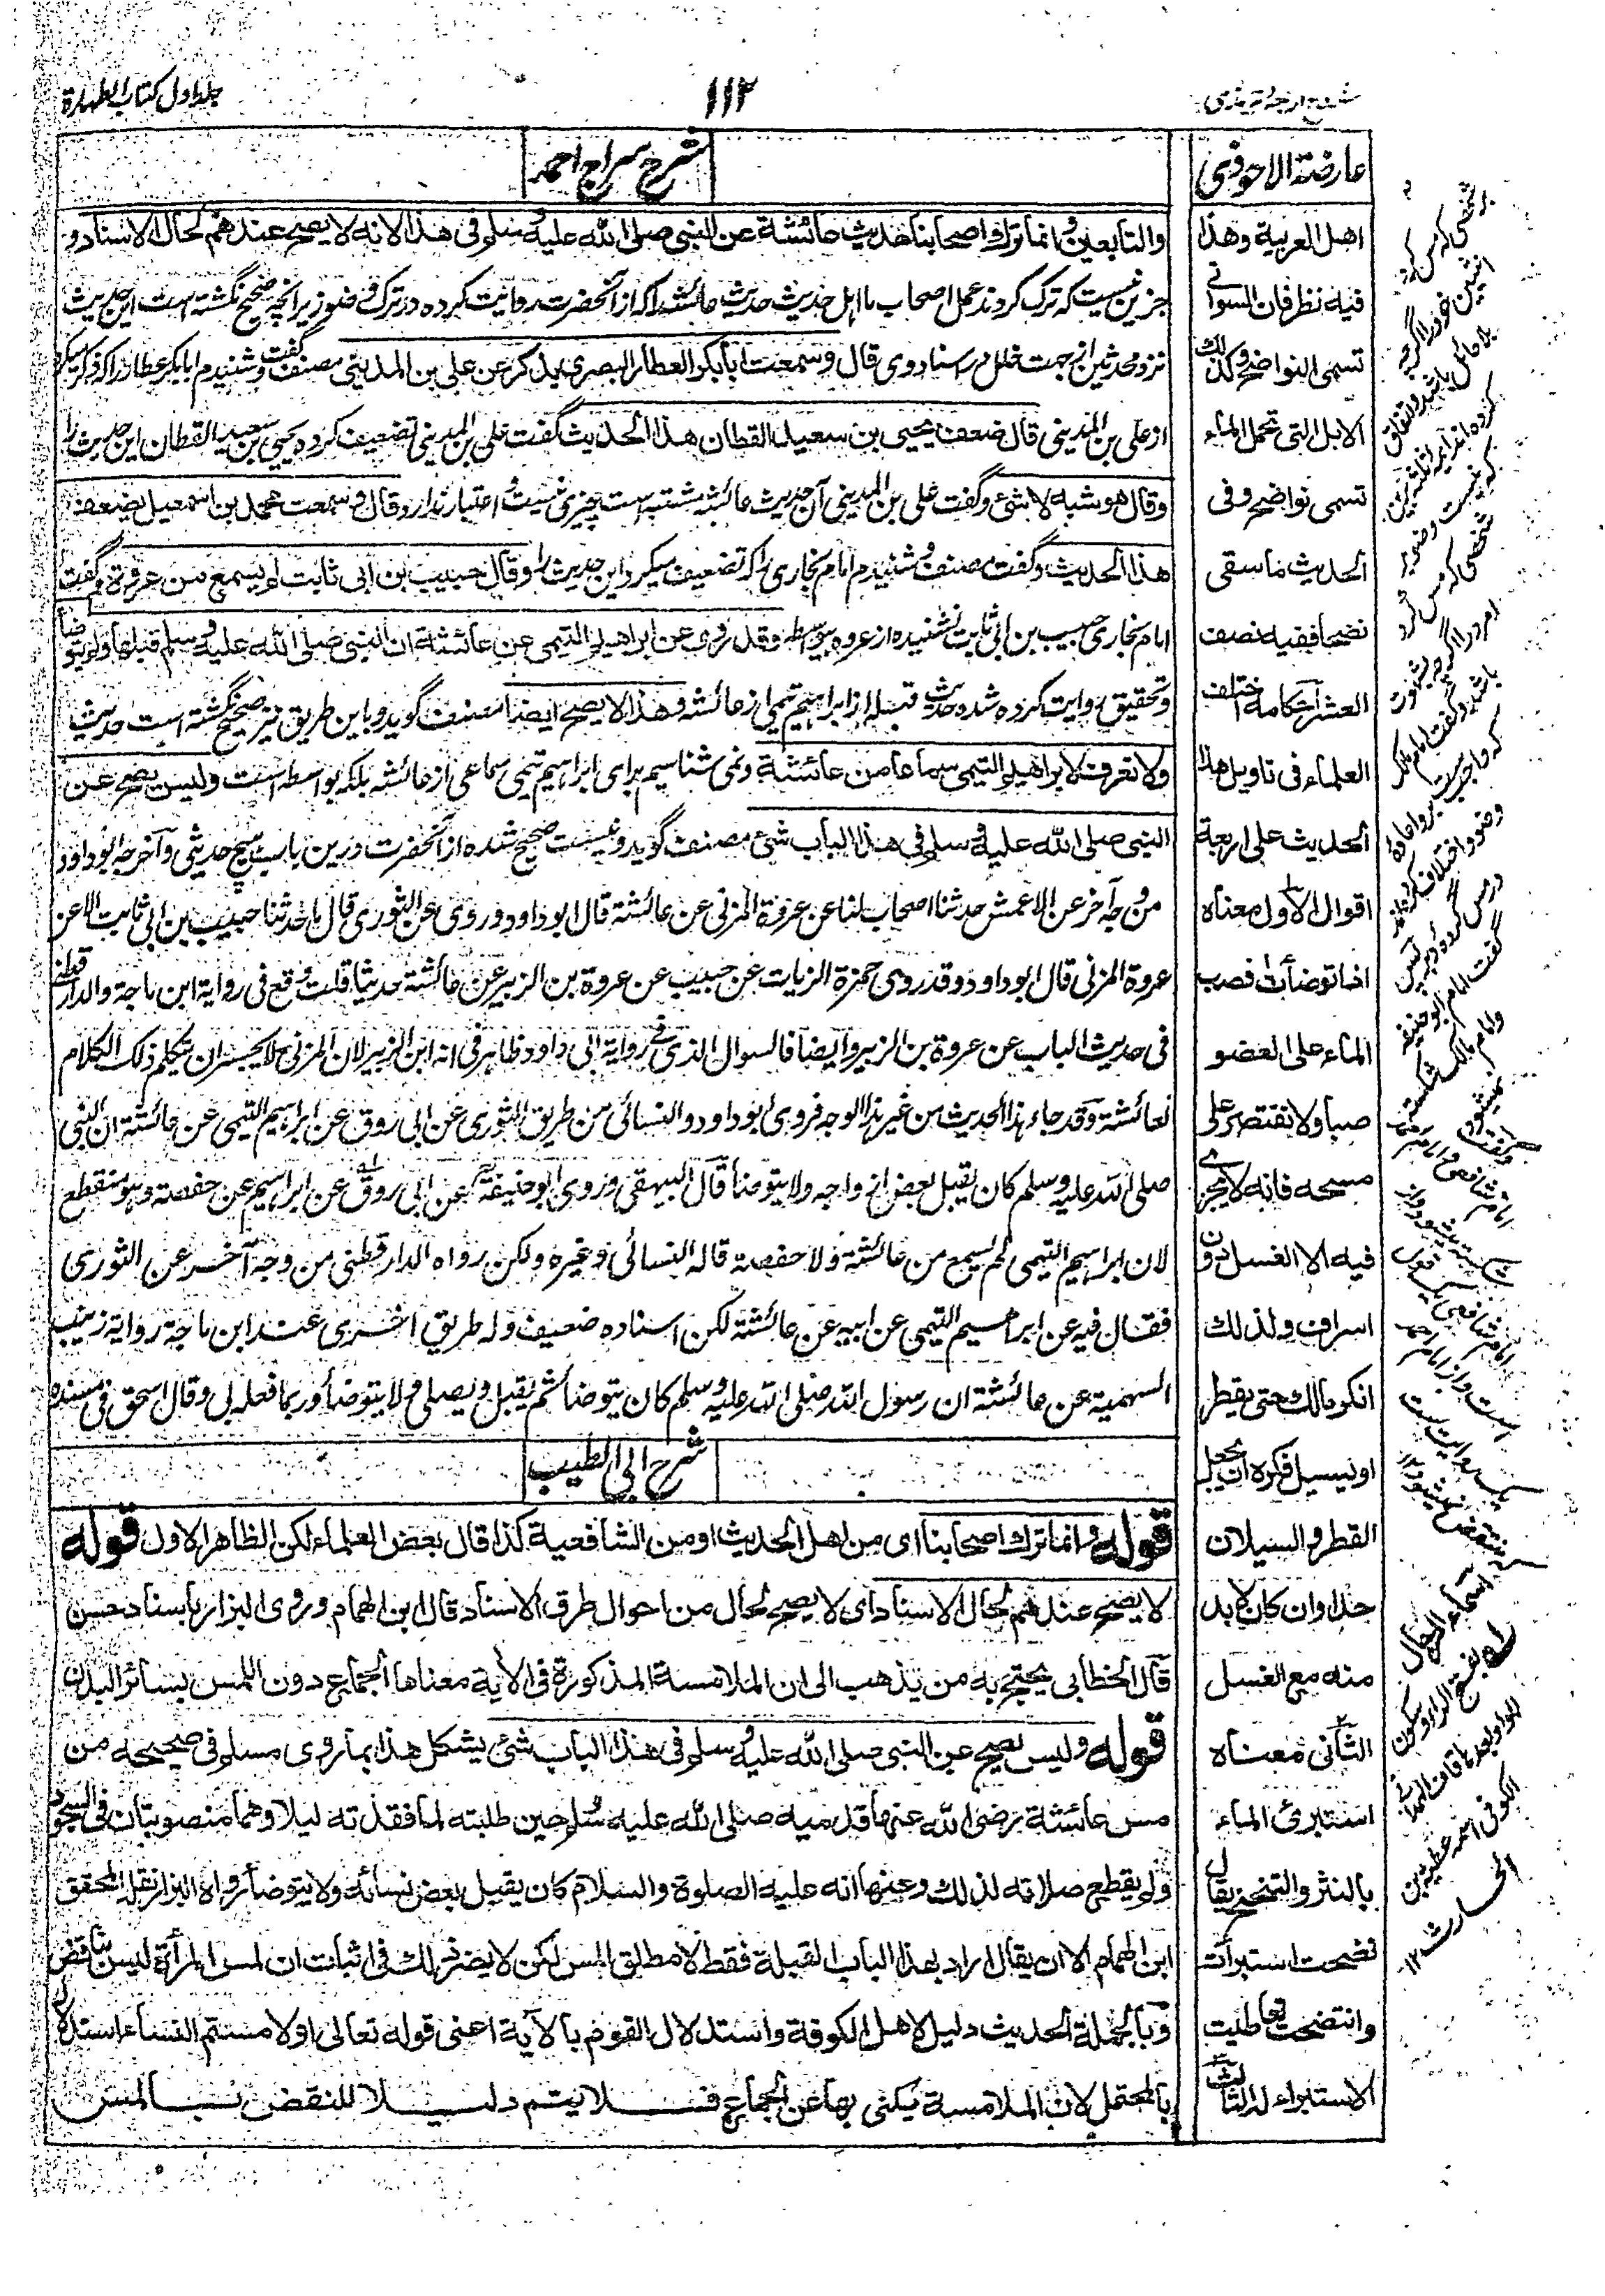 شروح اربعه ترمذی
۱۱۲
جلد اول کتاب الطهارة
عارضة الاحوذی
اهل العربية وهذا
فيه نظر فان السوانی
تسمى النواضح وكذلك
الابل التی تحمل الماء
تسمى نواضح وفی
الحديث ما سقی
نضحا ففيه نصف
العشر احكامه اختلف
العلماء فی تاويل هذا
الحديث علی اربعة
اقوال الاول معناه
اذا توضأت فصب
الماء علی العضو
صبا ولا تقتصر علی
مسحه فانه لا يجزی
فيه الا الغسل دون
اسراف ولذلك
انكر مالك حتی يقطر
او يسيل فكره ان يجعل
القطر والسيلان
حدا وان كان لا بد
منه مع الغسل
الثانی معناه
استبرئ الماء
بالنثر والتنحنح يقال
نضحت استبرأت
وانتضحت تعاطيت
الاستبراء له الثالث
شرح سراج احمد
والتابعين وانما ترك اصحابنا حديث عائشة عن النبی صلی الله عليه وسلم فی هذا لانه لا يصح عندهم لحال الاسناد و
جزين نيست که ترک کردند عمل اصحاب ما اهل حديث حديث عائشه را که از آنحضرت روايت کرده در ترک وضو زيرانچه صحيح نگشته است اين حديث
نزد محدثين از جهت خلل در اسناد وی قال وسمعت ابا بكر العطار البصری يذكر عن علی بن المدينی مصنف گفت و شنيدم ابابکر عطار را که ذکر میکرد
از علی بن المدينی قال ضعف يحيی بن سعيد القطان هذا الحديث گفت علی بن المدينی تضعيف کرده يحيی بن سعيد القطان اين حديث را
وقال هو شبه لا شئ وگفت علی بن المدينی آن حديث عائشه مشتبه است چيزی نيست و اعتبار ندارد وقال وسمعت محمد بن اسمعيل يضعف
هذا الحديث وگفت مصنف و شنيدم امام بخاری را که تضعيف ميکرد اين حديث را وقال حبيب بن ابی ثابت لم يسمع من عروة وگفت
امام بخاری حبيب بن ابی ثابت نشنيده از عروه بيواسطه وقد روی عن ابراهيم التيمی عن عائشة ان النبی صلی الله عليه وسلم قبلها ولم يتوضأ
وتحقيق روايت کرده شد حديث قبله از ابراهيم تيمی از عائشه وهذا لا يصح ايضا مصنف گويد و باين طريق نيز صحيح نگشته است حديث
ولا نعرف لابراهيم التيمی سماعا من عائشة ونمی شناسيم برای ابراهيم تيمی سماعی از عائشه بلکه بواسطه است وليس يصح عن
النبی صلی الله عليه وسلم فی هذا الباب شئ مصنف گويد ونيست صحيح شده از آنحضرت درين باب هيچ حديثی وآخرجه ابو داود
من وجه آخر عن الاعمش حدثنا اصحاب لنا عن عروة المزنی عن عائشة قال ابو داود وروی عن الثوری قال ما حدثنا حبيب بن ابی ثابت الا عن
عروة المزنی قال ابو داود وقد روی حمزة الزيات عن حبيب عن عروة بن الزبير عن عائشة حديثا قلت وقع فی رواية ابن ماجة والدارقطنی
فی حديث الباب عن عروة بن الزبير وايضا فالسوال الذی فی رواية ابی داود ظاهر فی انه ابن الزبير لان المزنی لا يجسر ان يتكلم ذلك الكلام
لعائشة وقد جاء هذا الحديث من غير هذا الوجه فروی ابو داود والنسائی من طريق الثوری عن ابی روق عن ابراهيم التيمی عن عائشة ان النبی
صلی الله عليه وسلم كان يقبل بعض ازواجه ولا يتوضأ قال البيهقی وروی ابو حنيفة عن ابی روق عن ابراهيم عن حفصة وهو منقطع
لان ابراهيم التيمی لم يسمع من عائشة ولا حفصة قاله النسائی وغيره ولكن رواه الدارقطنی من وجه آخر عن الثوری
فقال فيه عن ابراهيم التيمی عن ابيه عن عائشة لكن اسناده ضعيف وله طريق اخری عند ابن ماجة رواية زينب
السهمية عن عائشة ان رسول الله صلی الله عليه وسلم كان يتوضأ ثم يقبل ويصلی ولا يتوضأ وربما فعله بی وقال اسحق فی مسنده
شرح ابی الطيب
قوله وانما ترك اصحابنا ای من اهل الحديث او من الشافعية كذا قال بعض العلماء لكن الظاهر الاول قوله
لا يصح عندهم لحال الاسناد ای لا يصح لحال من احوال طرق الاسناد قال ابن الهمام وروی البزار باسناد حسن
قال الخطابی يحتج به من يذهب الی ان الملامسة المذكورة فی الآية معناها الجماع دون اللمس بسائر البدن
قوله وليس يصح عن النبی صلی الله عليه وسلم فی هذا الباب شئ يشكل هذا بما روی مسلم فی صحيحه من
مس عائشة رضی الله عنها قدميه صلی الله عليه وسلم حين طلبته لما فقدته ليلا وهما منصوبتان فی السجود
ولم يقطع صلاته لذلك وعنها انه عليه الصلوة والسلام كان يقبل بعض نسائه ولا يتوضأ رواه البزار نقله المحقق
ابن الهمام الا ان يقال اراد بهذا الباب القبلة فقط لا مطلق المس لكن لا يضر ذلك فی اثبات ان لمس المرأة ليس بناقض
وبالجملة الحديث دليل لاهل الكوفة واستدلال القوم بالآية اعنی قوله تعالی او لامستم النساء استدلال
بالمحتمل لان الملامسة يكنی بها عن الجماع فلا يتم دليلا للنقض بالمس
هر شخصی که مس کرد
انثيين خود را اگرچه
بلا حائل باشد و اتفاق
کرده اند ايمه اربعه برين
که نيست وضو بر
شخصی که مس کرد
امرد را اگرچه بشهوت
باشد وگفت امام مالک
که واجب است برو اعاده
وضو و اختلاف کرده اند
گفت امام ابو حنيفه
وامام مالک شکسته
نميشود وگفت
امام شافعی وامام احمد
اسماء الرجال
روق بفتح الراء وسكون
الواو بعدها قاف الهمدانی
الكوفی اسمه عطية بن
الحارث ۱۲